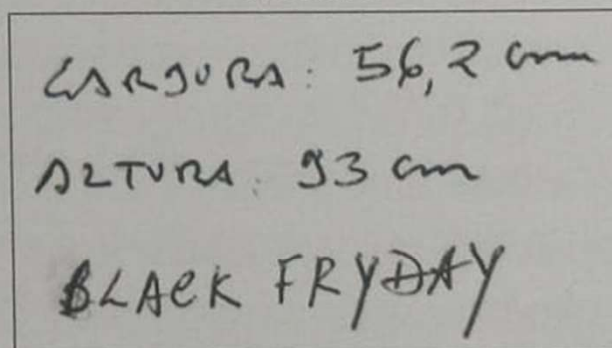 LARGURA: 56,2 cm
ALTURA: 93 cm
BLACK FRYDAY